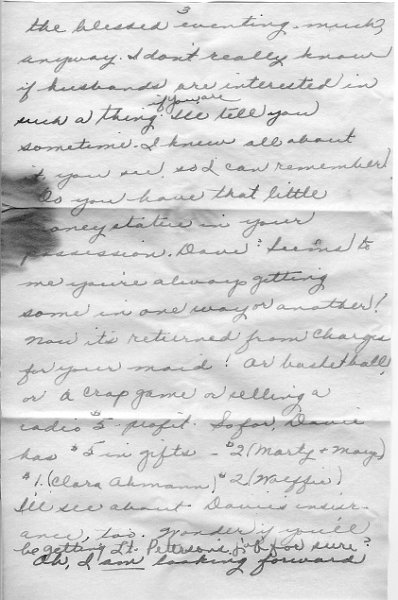 3
the blessed eventing. much,
anyway. I don't really know
if husbands are interested in
if you are
such a thing. I'll tell you
sometime. I knew all about
it you see, so I can remember!
Do you have that little
money status in your
possession, Dave? Seems to
me you're always getting
some in one way or another!
Now it's returned from charges
for your maid! Or basketball,
or a crap game or selling a
radio $5 profit. So far, Davie
has $5 in gifts - $2 (Marty + Mary)
$1. (Clara Ahmann) $2 (Wolffie)
I'll see about Davie's insur-
ance, too. Wonder if you'll
be getting Lt. Peterson's job for sure?
Oh, I am looking forward